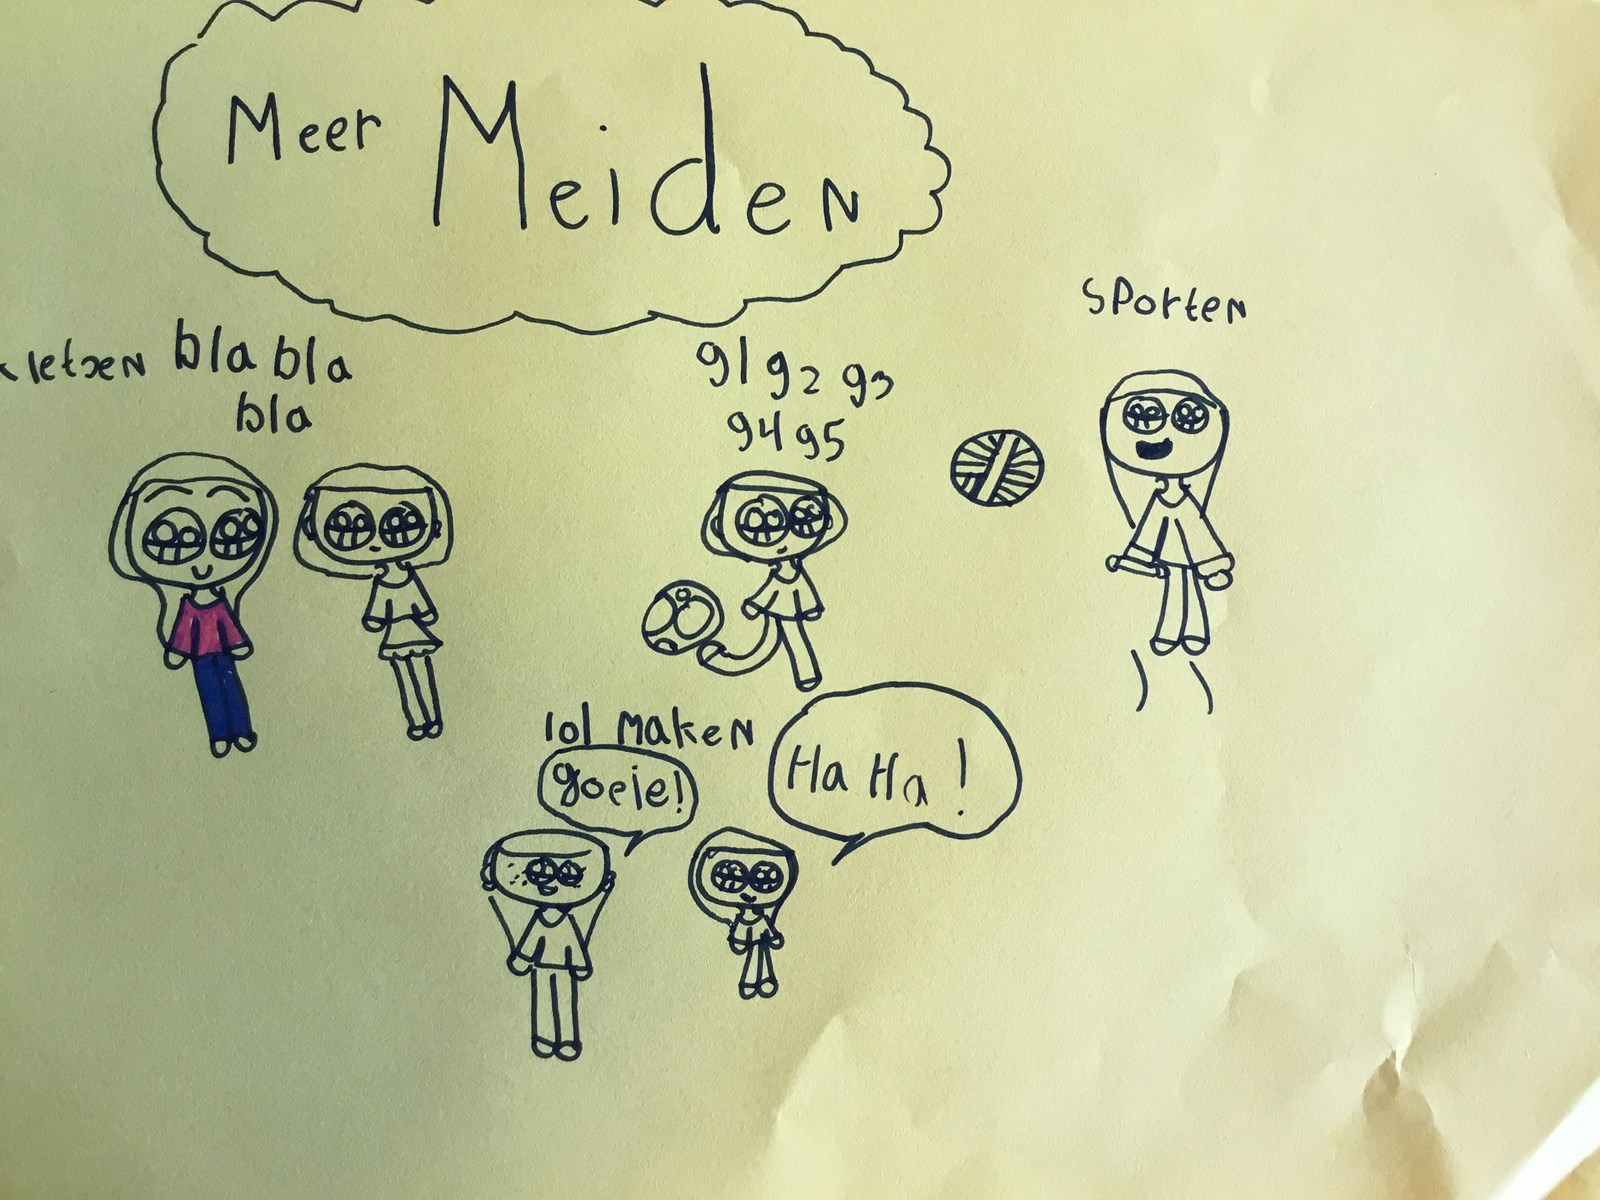 Meer Meiden
kletsen bla bla
bla
91 92 93
94 95
sporten
lol maken
goeie!
Ha Ha!